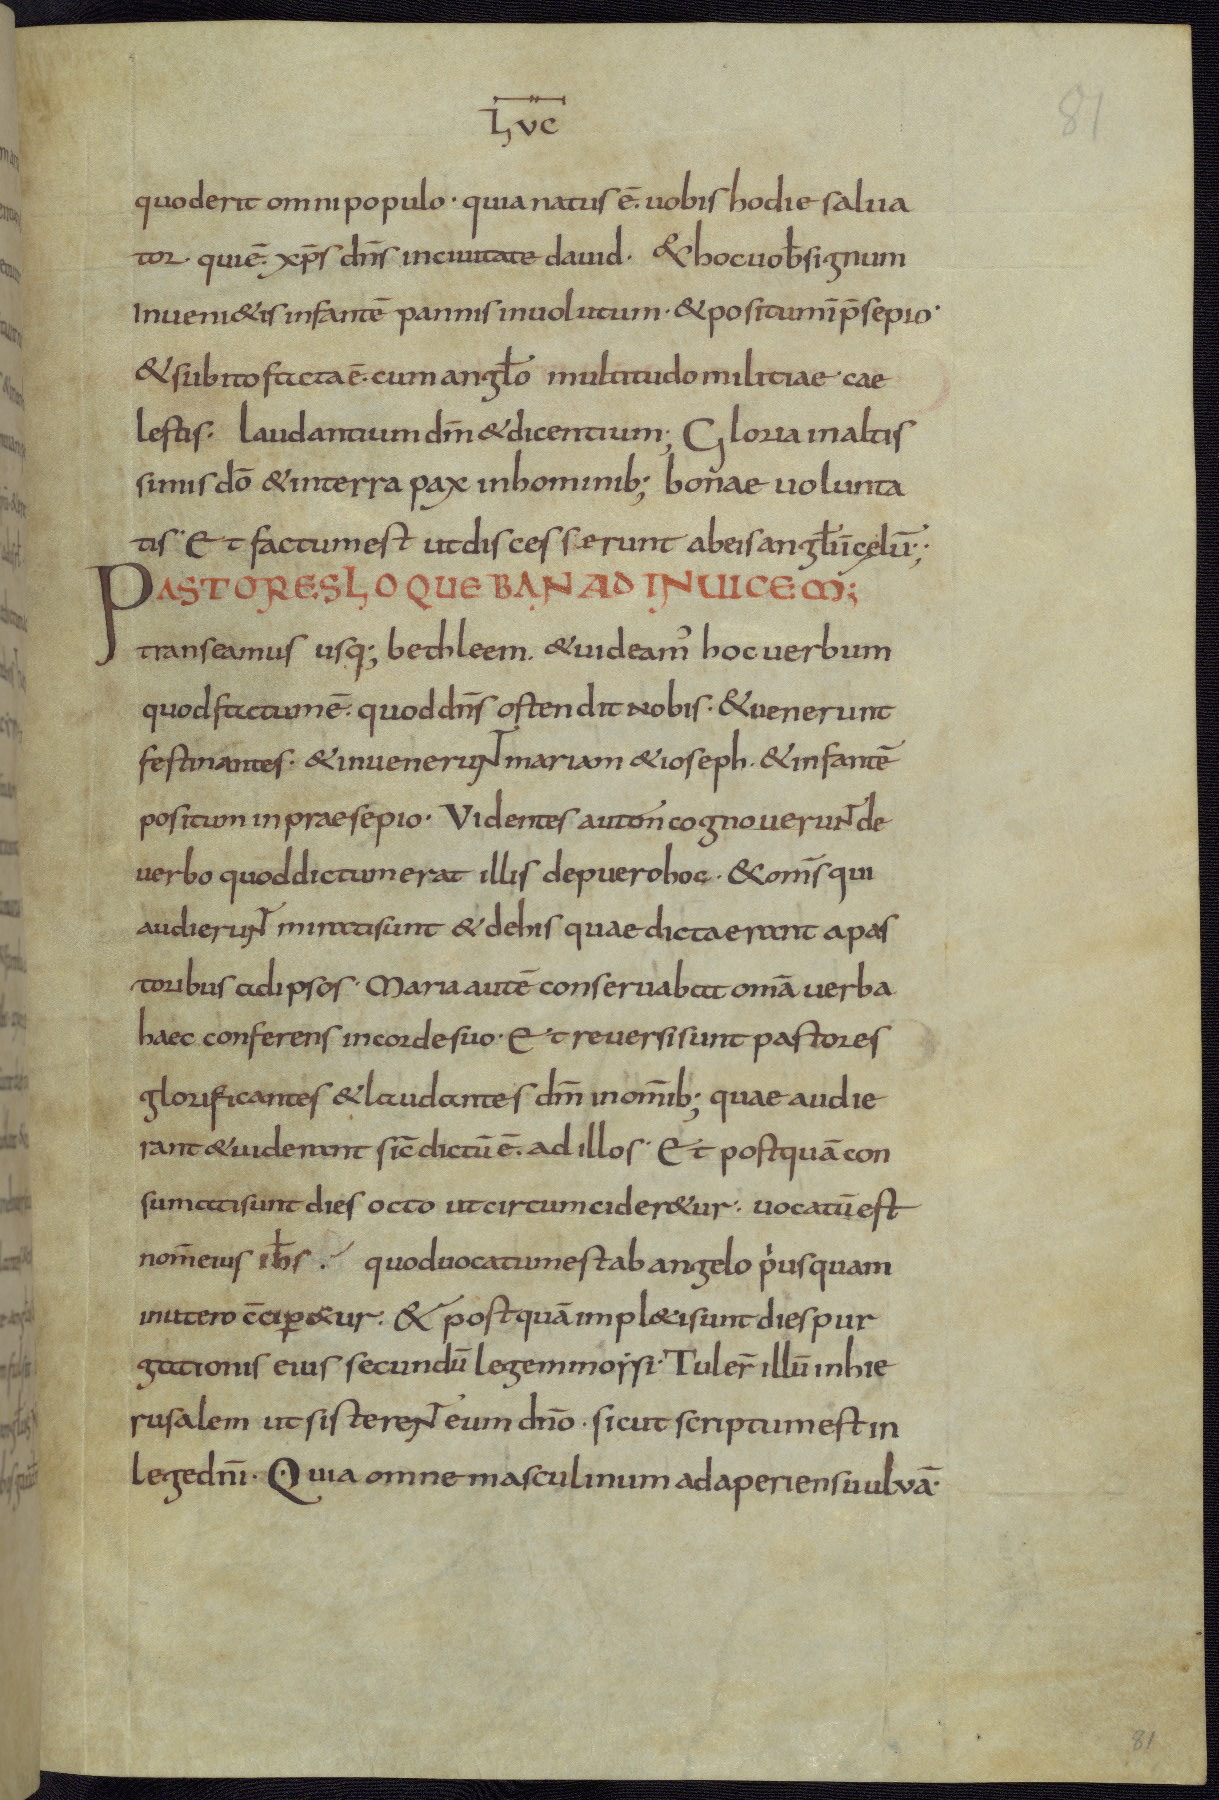 81
Luc̅
quoderit omnipopulo · quia natus ē. uobis hodie salua
tor · qui ē. xp̄s dn̄s inciuitate dauid · & hoc uob̄ signum
Inueni&is infantē pannis inuolutum · & positum ī p̄sepio ·
& subito facta ē. cum angl̄o multitudo militiae cae
lestis · laudantium dm̄ & dicentium ; Gloria in altis
simis dō & interra pax inhominib; bonae uolunta
tis · Et factum est ut discesserunt abeis angl̄i ī cęlū ;
PASTORES LOQUEBAN AD INUICEM ;
transeamus usq; bethleem . & uideam᾽ hoc uerbum
quod factum ē. quod dn̄s ostendit nobis · & uenerunt
festinantes · & inuenerunt mariam & ioseph . & infantē
positum in praesepio · Videntes autem cognouerunt de
uerbo quod dictum erat illis de puero hoc · & om̄s qui
audierunt mirati sunt & de his quae dicta erant a pas
toribus ad ipsos · Maria autē conseruabat om̄a uerba
haec conferens in corde suo · Et reuersi sunt pastores
glorificantes & laudantes dm̄ in om̄ib; quae audie
rant & uiderant sic̄ dictū ē. ad illos · Et postquā con
sumati sunt dies octo ut circumcider&ur · uocatū est
nom̄ eius ih̄s . quod uocatum est ab angelo p̍usquam
inutero c̄cip&ur · & postquā impl&i sunt dies pur
gationis eius secundū legem moysi · Tuler̄ illū inhie
rusalem ut sisterent eum dn̄o · sicut scriptum est in
lege dn̄i · Quia omne masculinum adaperiens uuluā ·
81